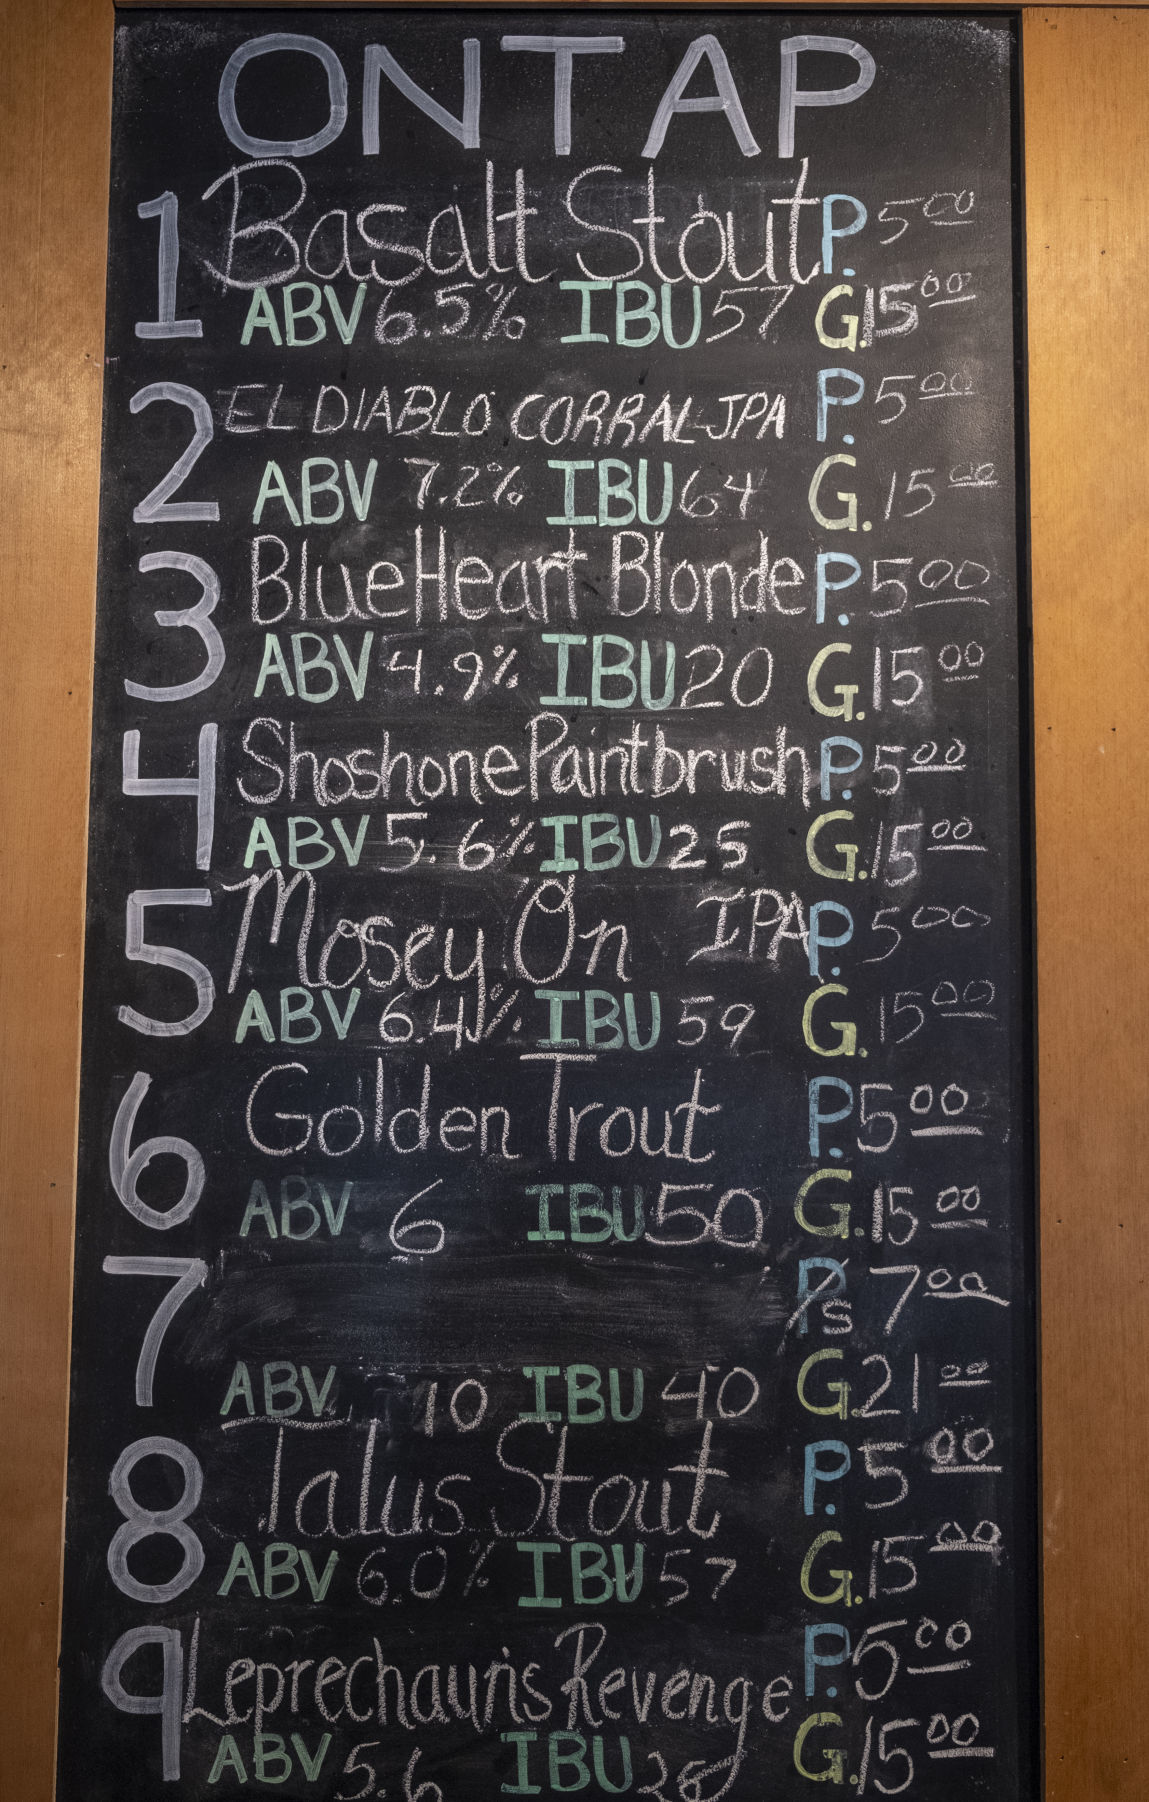 ON TAP
1 Basalt Stout P. 5 00
ABV 6.5% IBU 57 G. 15 00
2 EL DIABLO CORRAL IPA P. 5 00
ABV 7.2% IBU 64 G. 15 00
3 Blue Heart Blonde P. 5 00
ABV 4.9% IBU 20 G. 15 00
4 Shoshone Paintbrush P. 5 00
ABV 5.6% IBU 25 G. 15 00
5 Mosey On IPA P. 5 00
ABV 6.4% IBU 59 G. 15 00
6 Golden Trout P. 5 00
ABV 6 IBU 50 G. 15 00
7 P/s 7 00
ABV 10 IBU 40 G. 21 00
8 Talus Stout P. 5 00
ABV 6.0% IBU 57 G. 15 00
9 Leprechaun's Revenge P. 5 00
ABV 5.6 IBU G. 15 00